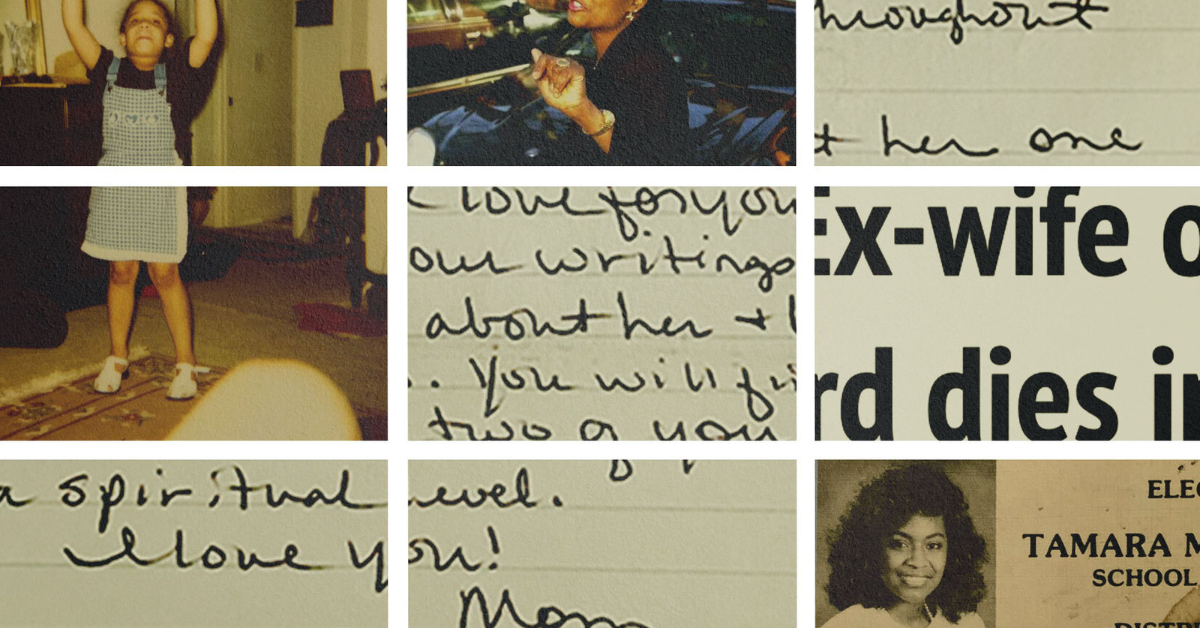 throughout
t her one
love for you
our writings
about her +
. You will
two of you
Ex-wife o
rd dies in
a spiritual level.
I love you!
Mom
ELEC
TAMARA M
SCHOOL
DISTR